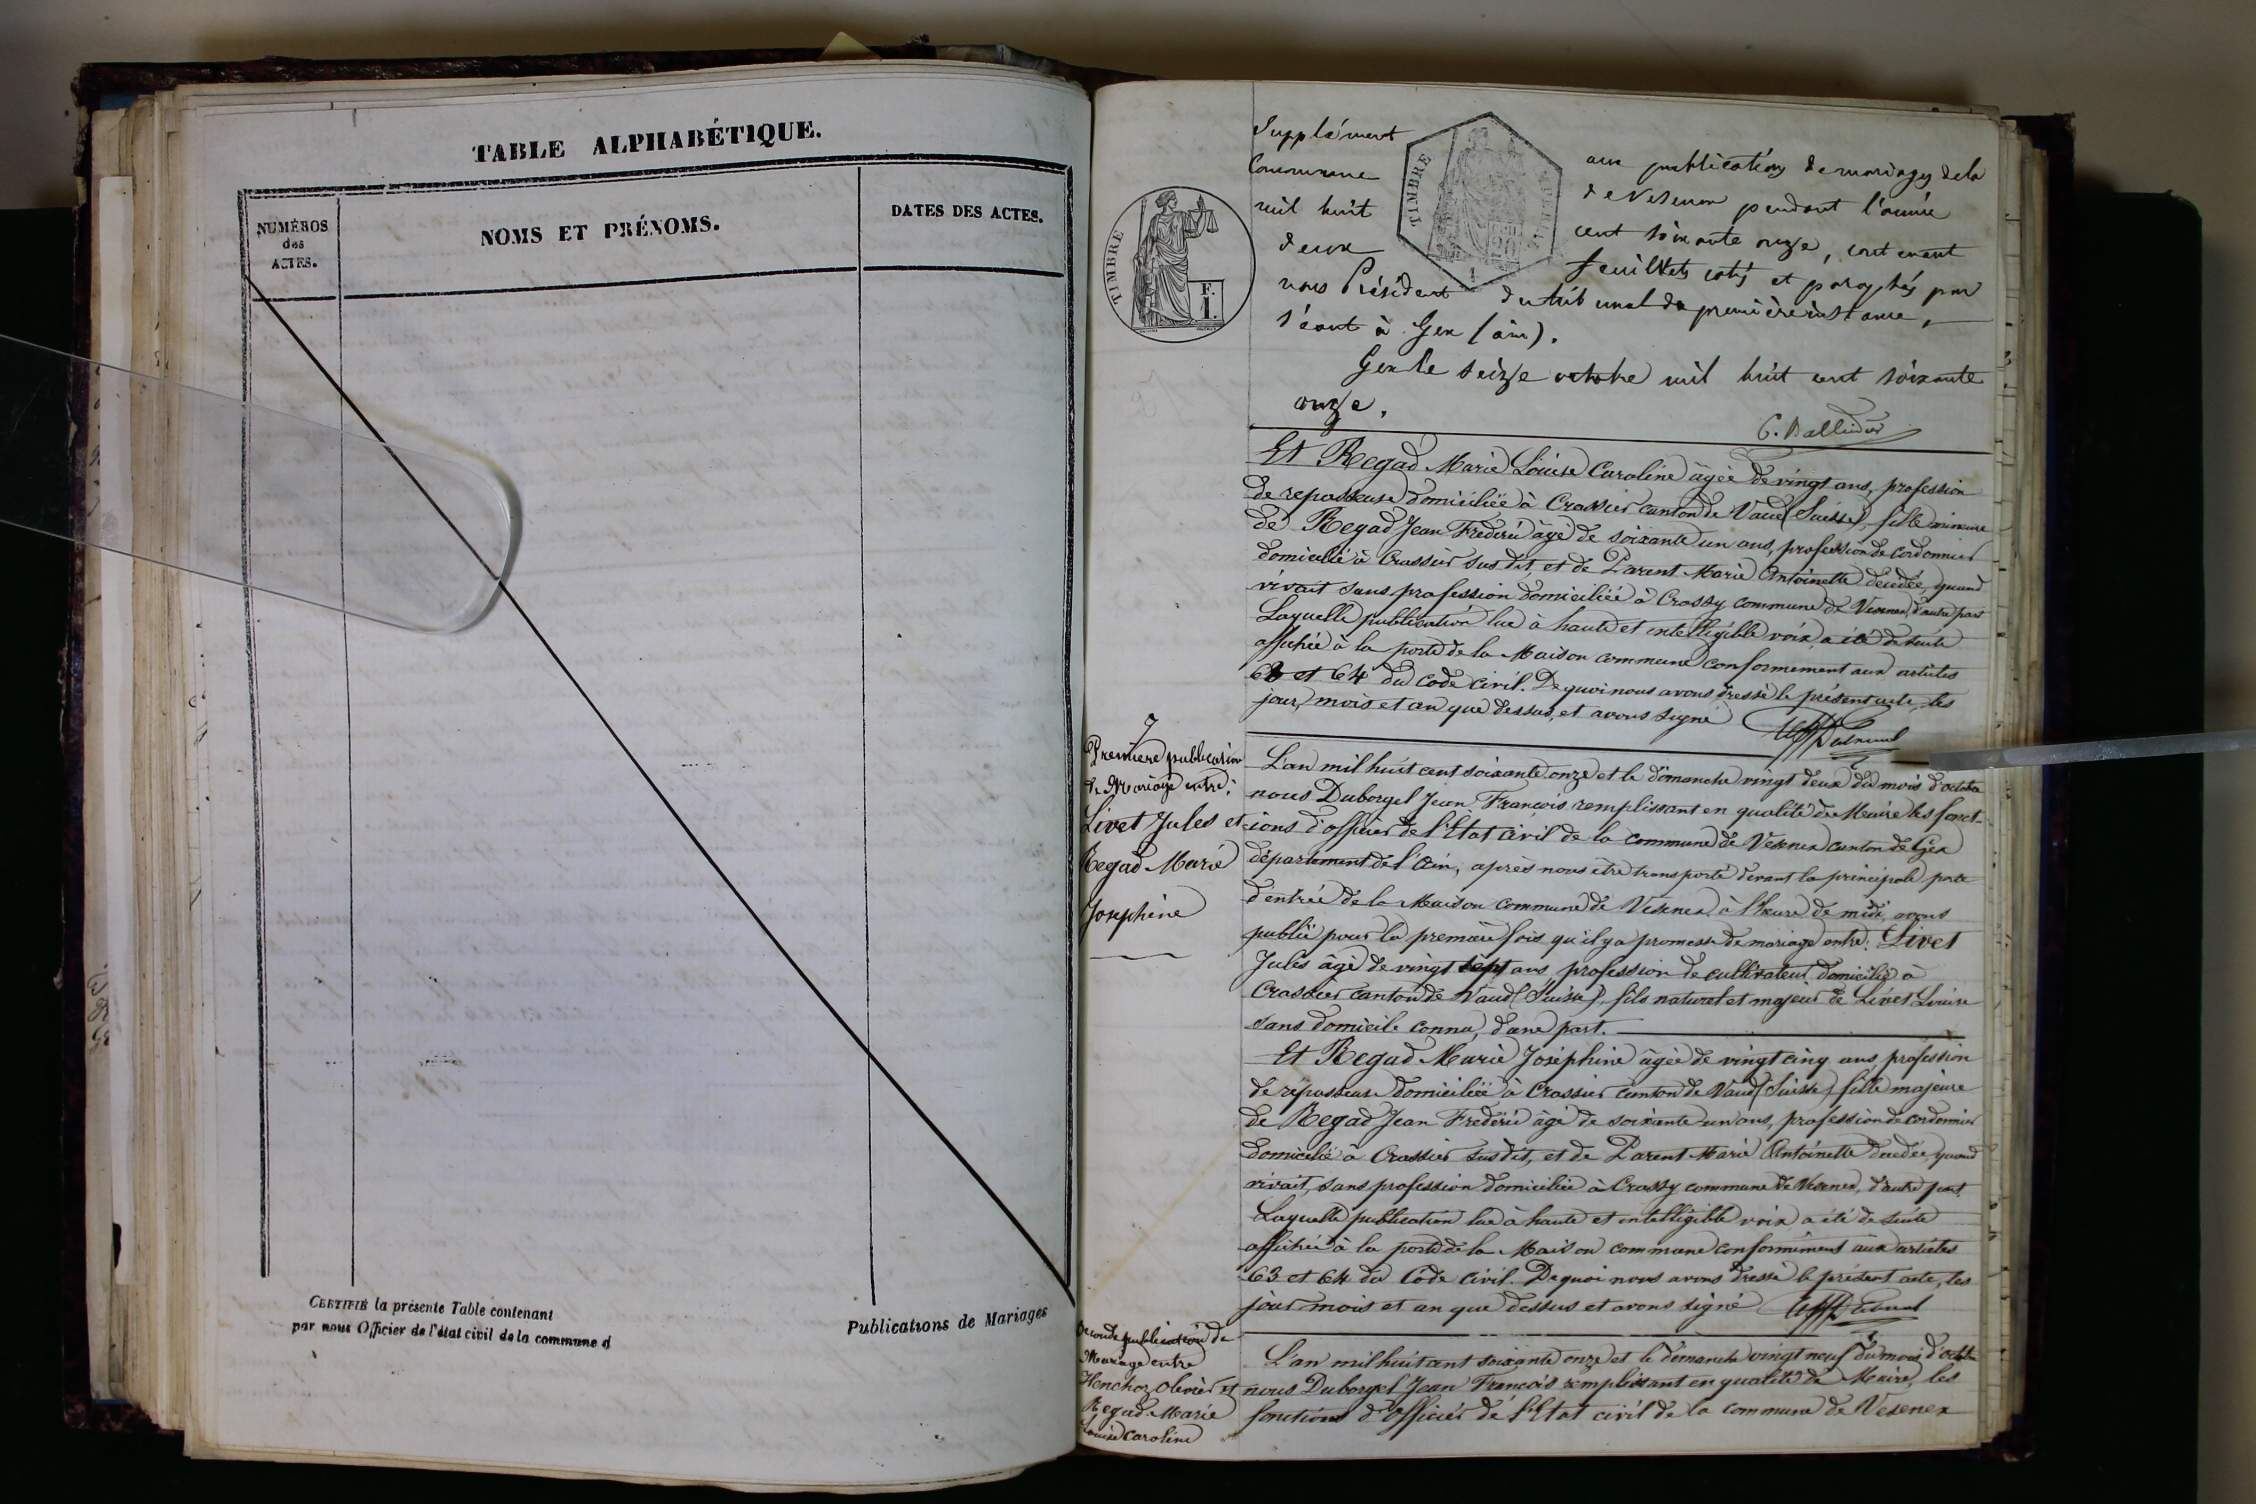 TABLE ALPHABÉTIQUE.
NUMÉROS
des
ACTES.
NOMS ET PRÉNOMS.
DATES DES ACTES.
CERTIFIÉ la présente Table contenant
par nous Officier de l'état civil de la commune d
Publications de Mariages
TIMBRE
F.
1.
TIMBRE
Supplément aux publications de mariages de la
Commune de Vesenex pendant l'année
mil huit cent soixante onze, contenant
deux feuillets cotés et paraphés par
nous Président du tribunal de première instance,
séant à Gex (ain).
Gex le seize octobre mil huit cent soixante
onze.
Et Regad Marie Louise Caroline âgée de vingt ans, profession
de repasseuse domiciliée à Crassier canton de Vaud (Suisse), fille mineure
de Regad Jean Frédéric âgé de soixante un ans, profession de cordonnier
domicilié à Crassier susdit, et de Parent Marie Antoinette décédée, quand
vivait sans profession domiciliée à Crassy commune de Vesenex, d'autre part
Laquelle publication lue à haute et intelligible voix, a été de suite
affichée à la porte de la Maison commune conformément aux articles
63 et 64 du Code civil. De quoi nous avons dressé le présent acte, les
jour, mois et an que dessus, et avons signé
7
Première publication
de Mariage entre:
Livet Jules et
Regad Marie
Josephine
L'an mil huit cent soixante onze et le dimanche vingt deux du mois d'octobre
nous Duborgel Jean François remplissant en qualité de Maire les fonct-
ions d'officier de l'Etat civil de la commune de Vesenex canton de Gex
département de l'Ain, après nous être transporté devant la principale porte
d'entrée de la Maison commune de Vesenex, à l'heure de midi, avons
publié pour la première fois qu'il y a promesse de mariage entre: Livet
Jules âgé de vingt sept ans, profession de cultivateur domicilié à
Crassier canton de Vaud (Suisse), fils naturel et majeur de Livet Louise
sans domicile connu, d'une part.
Et Regad Marie Joséphine âgée de vingt cinq ans profession
de repasseuse domiciliée à Crassier canton de Vaud (Suisse) fille majeure
de Regad Jean Frédéric âgé de soixante un ans, profession de cordonnier
domicilié à Crassier susdit, et de Parent Marie Antoinette décédée, quand
vivait, sans profession domiciliée à Crassy commune de Vesenex, d'autre part.
Laquelle publication lue à haute et intelligible voix a été de suite
affichée à la porte de la Maison commune conformément aux articles
63 et 64 du Code civil. De quoi nous avons dressé le présent acte, les
jour mois et an que dessus et avons signé
Seconde publication de
Mariage entre
Henchoz Olivier et
Regad Marie
Louise Caroline
L'an mil huit cent soixante onze et le dimanche vingt neuf du mois d'octobre
nous Duborgel Jean François remplissant en qualité de Maire, les
fonctions d'Officier de l'Etat civil de la commune de Vesenex